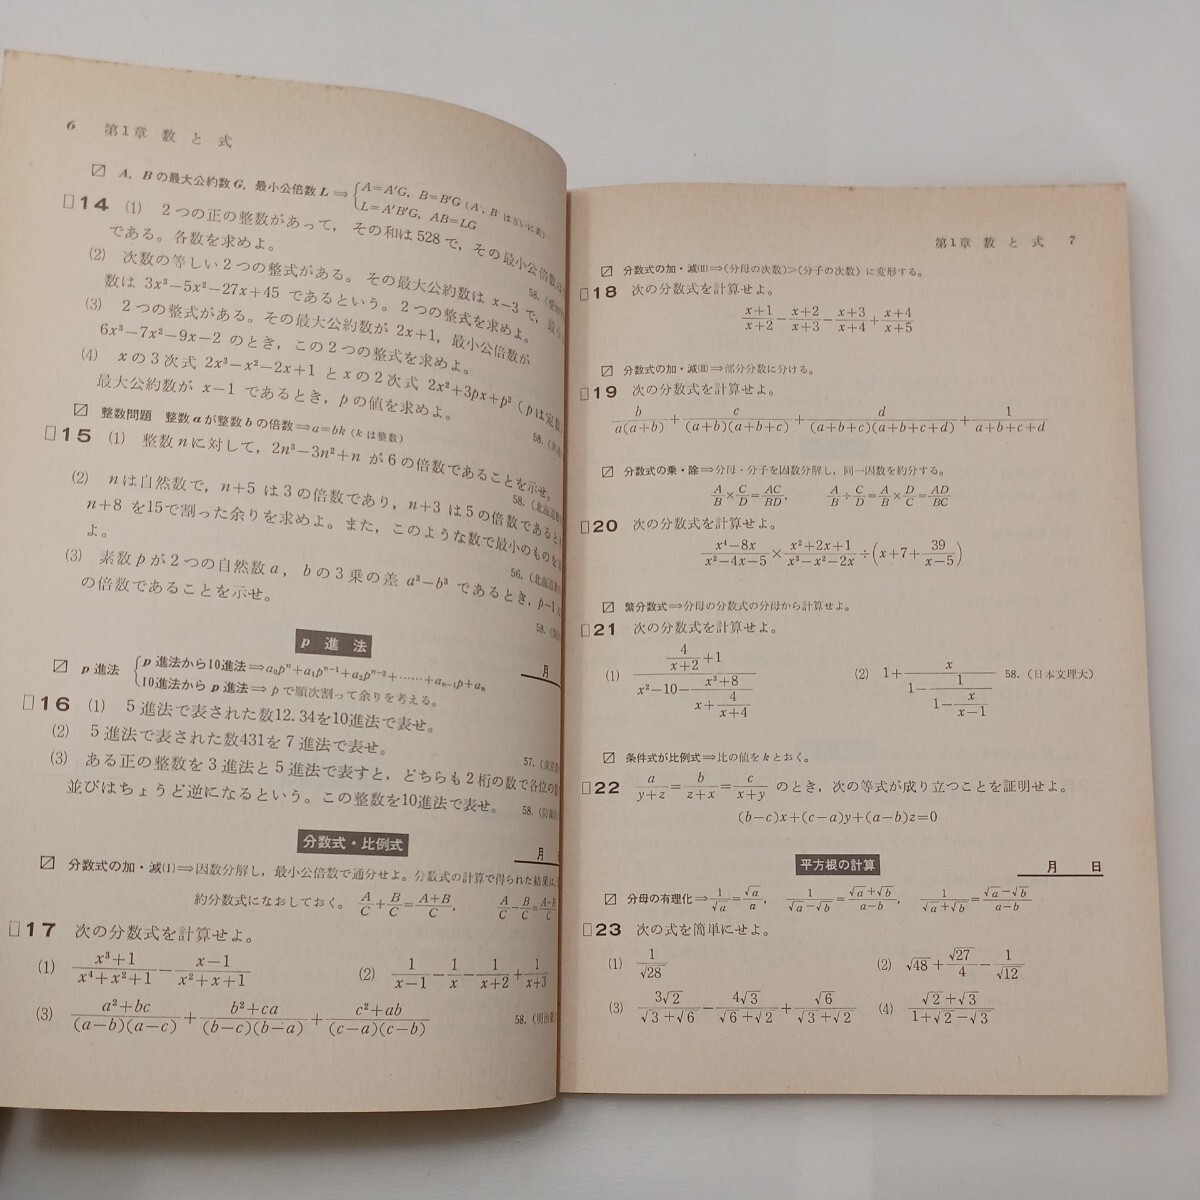 6 第1章 数 と 式
A, Bの最大公約数G, 最小公倍数L⇒{A=A′G, B=B′G (A′, B′は互いに素)
L=A′B′G, AB=LG
14 (1) 2つの正の整数があって, その和は528で, その最小公倍数は
である。各数を求めよ。
58.
(2) 次数の等しい2つの整式がある。その最大公約数は x−3 で, 最小
数は 3x³−5x²−27x+45 であるという。2つの整式を求めよ。
(3) 2つの整式がある。その最大公約数が 2x+1, 最小公倍数が
6x³−7x²−9x−2 のとき, この2つの整式を求めよ。
(4) xの3次式 2x³−x²−2x+1 とxの2次式 2x²+3px+p² (pは定数)
最大公約数が x−1 であるとき, pの値を求めよ。
58.
整数問題 整数aが整数bの倍数⇒a=bk (kは整数)
15 (1) 整数nに対して, 2n³−3n²+n が6の倍数であることを示せ。
58. (北海道
(2) nは自然数で, n+5 は3の倍数であり, n+3 は5の倍数であると
n+8 を15で割った余りを求めよ。また, このような数で最小のものを
よ。
56. (北海道
(3) 素数pが2つの自然数a, bの3乗の差 a³−b³ であるとき, p−1
の倍数であることを示せ。
58.
p 進 法
月
p 進法 {p 進法から10進法⇒a₀pⁿ+a₁pⁿ⁻¹+a₂pⁿ⁻²+……+aₙ₋₁p+aₙ
10進法から p 進法⇒ pで順次割って余りを考える。
16 (1) 5進法で表された数12.34を10進法で表せ。
(2) 5進法で表された数431を7進法で表せ。
57. (東京
(3) ある正の整数を3進法と5進法で表すと, どちらも2桁の数で各位の
並びはちょうど逆になるという。この整数を10進法で表せ。
58.
分数式・比例式
月
分数式の加・減(I)⇒因数分解し, 最小公倍数で通分せよ。分数式の計算で得られた結果は,
約分数式になおしておく。 A/C+B/C=(A+B)/C, A/C−B/C=(A−B)/C
17 次の分数式を計算せよ。
(1) (x³+1)/(x⁴+x²+1)−(x−1)/(x²+x+1) (2) 1/(x−1)−1/x−1/(x+2)+1/(x+3)
(3) (a²+bc)/((a−b)(a−c))+(b²+ca)/((b−c)(b−a))+(c²+ab)/((c−a)(c−b)) 58. (明治
第1章 数 と 式 7
分数式の加・減(II)⇒(分母の次数)>(分子の次数) に変形する。
18 次の分数式を計算せよ。
(x+1)/(x+2)−(x+2)/(x+3)−(x+3)/(x+4)+(x+4)/(x+5)
分数式の加・減(III)⇒部分分数に分ける。
19 次の分数式を計算せよ。
b/(a(a+b))+c/((a+b)(a+b+c))+d/((a+b+c)(a+b+c+d))+1/(a+b+c+d)
分数式の乗・除⇒分母・分子を因数分解し, 同一因数を約分する。
A/B×C/D=AC/BD, A/B÷C/D=A/B×D/C=AD/BC
20 次の分数式を計算せよ。
(x⁴−8x)/(x²−4x−5)×(x²+2x+1)/(x³−x²−2x)÷(x+7+39/(x−5))
繁分数式⇒分母の分数式の分母から計算せよ。
21 次の分数式を計算せよ。
(1) (4/(x+2)+1)/(x²−10−(x³+8)/(x+4/(x+4))) (2) 1+x/(1−1/(1−x/(x−1))) 58. (日本文理大)
条件式が比例式⇒比の値をkとおく。
22 a/(y+z)=b/(z+x)=c/(x+y) のとき, 次の等式が成り立つことを証明せよ。
(b−c)x+(c−a)y+(a−b)z=0
平方根の計算
月 日
分母の有理化⇒1/√a=√a/a, 1/(√a−√b)=(√a+√b)/(a−b), 1/(√a+√b)=(√a−√b)/(a−b)
23 次の式を簡単にせよ。
(1) 1/√28 (2) √48+√27/4−1/√12
(3) 3√2/(√3+√6)−4√3/(√6+√2)+√6/(√3+√2) (4) (√2+√3)/(1+√2−√3)